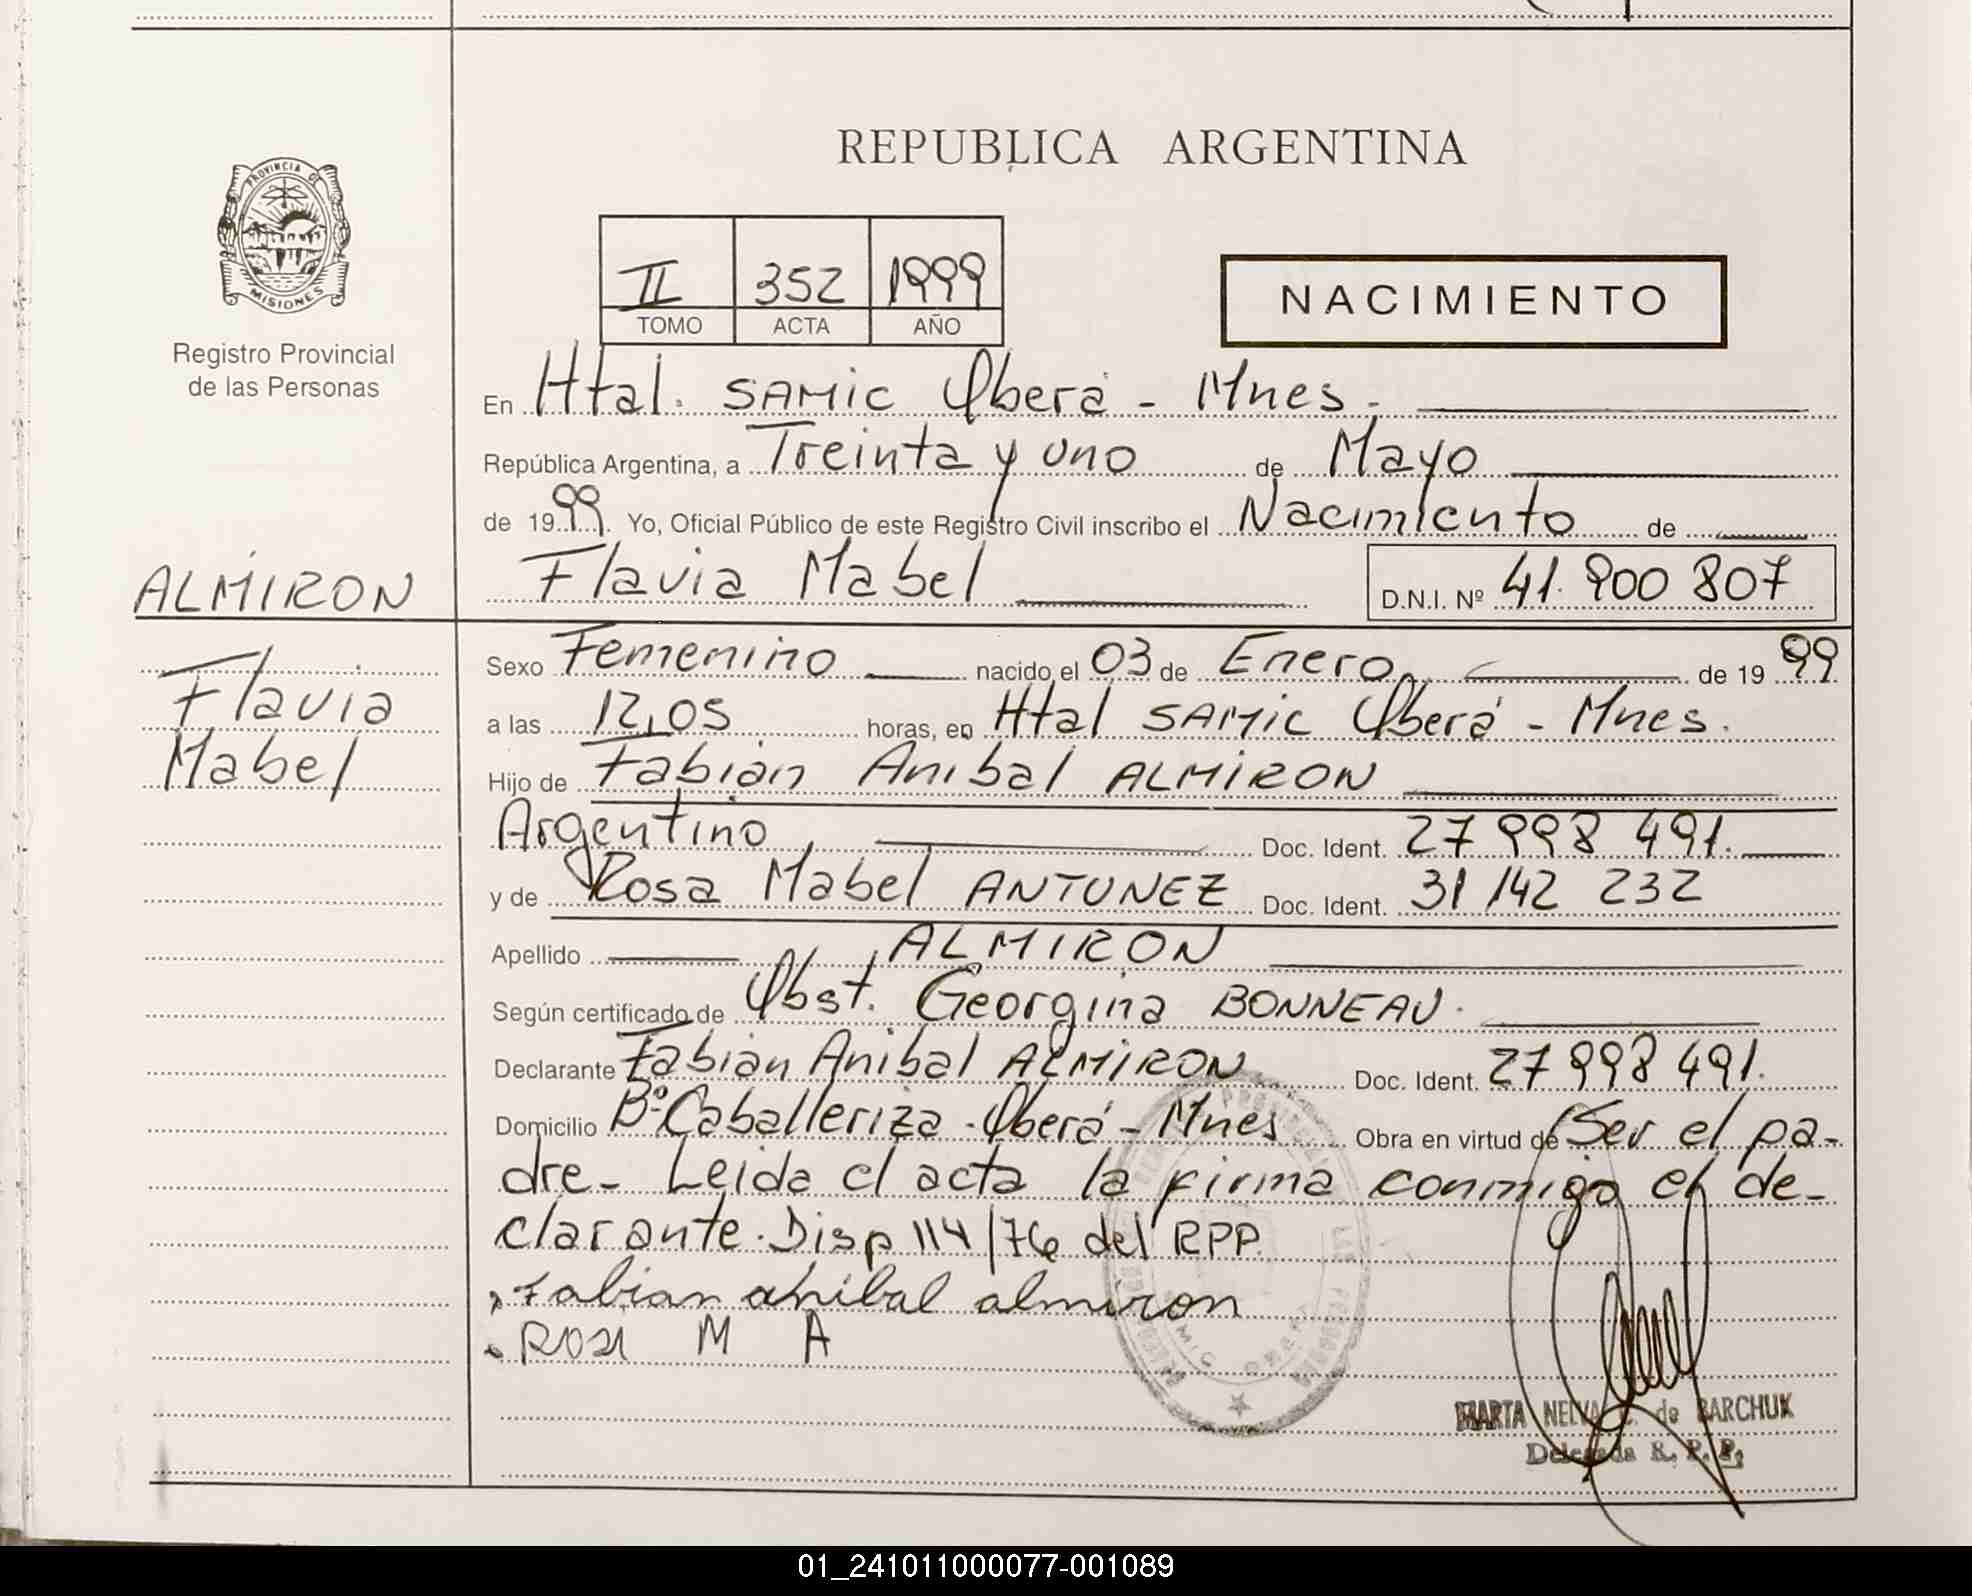 REPUBLICA ARGENTINA
PROVINCIA DE
MISIONES
Registro Provincial
de las Personas
II 352 1999
TOMO ACTA AÑO
NACIMIENTO
En Htal. SAMIC Oberá - Mnes.
República Argentina, a Treinta y uno de Mayo
de 1999. Yo, Oficial Público de este Registro Civil inscribo el Nacimiento de
ALMIRON
Flavia Mabel D.N.I. Nº 41.900 807
Flavia
Mabel
Sexo Femenino nacido el 03 de Enero de 1999
a las 12,05 horas, en Htal SAMIC Oberá - Mnes.
Hijo de Fabián Anibal ALMIRON
Argentino Doc. Ident. 27 998 491.
y de Rosa Mabel ANTUNEZ Doc. Ident. 31 142 232
Apellido ALMIRON
Según certificado de Obst. Georgina BONNEAU.
Declarante Fabián Anibal ALMIRON Doc. Ident. 27 998 491.
Domicilio Bº Caballeriza - Oberá - Mnes Obra en virtud de Ser el pa-
dre - Leida el acta la firma conmigo el de-
clarante. Disp 114/76 del RPP.
Fabian anibal almiron
Rosa M A
MARTA NELVA de BARCHUK
Delegada R. P. P.
01_241011000077-001089